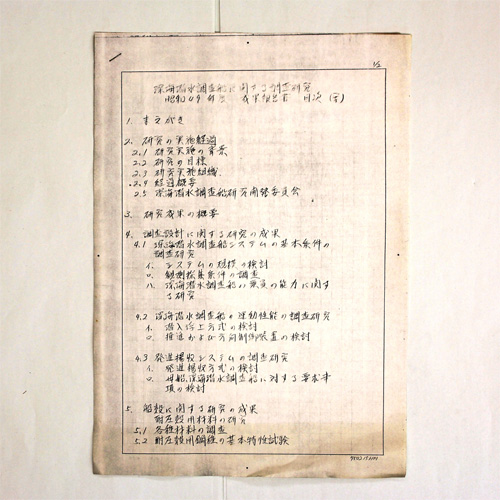 1/2
深海潜水調査船に関する調査研究
昭和49年度 成果報告書 目次 (案)
1. まえがき
2. 研究の実施経過
2.1 研究実施の背景
2.2 研究の目標
2.3 研究実施組織
2.4 経過概要
2.5 深海潜水調査船研究開発委員会
3. 研究成果の概要
4. 調査設計に関する研究の成果
4.1 深海潜水調査船システムの基本条件の
調査研究
イ. システムの規模の検討
ロ. 観測器基条件の調査
ハ. 深海潜水調査船の乗員の能力に関す
る研究
4.2 深海潜水調査船の運動性能の調査研究
イ. 潜入浮上方式の検討
ロ. 推進および方向制御装置の検討
4.3 発進揚収システムの調査研究
イ. 発進揚収方式の検討
ロ. 母船、深海潜水調査船に対する要求事
項の検討
5. 船殻に関する研究の成果
耐圧殻用材料の研究
5.1 各種材料の調査
5.2 耐圧殻用鋼板の基本特性試験